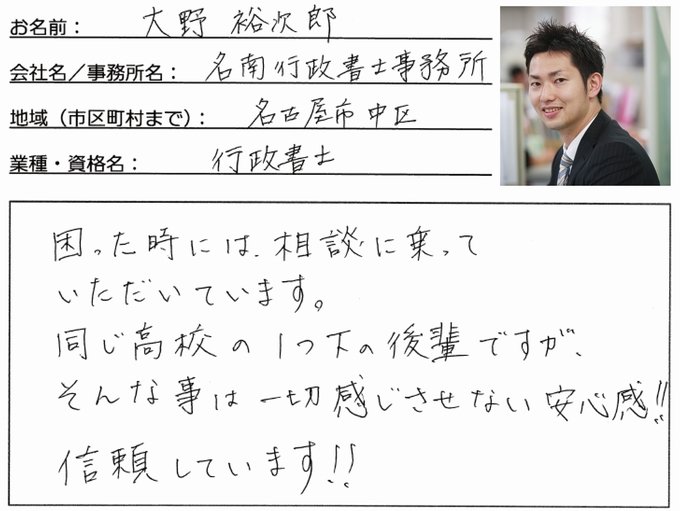 お名前： 大野 裕次郎
会社名／事務所名： 名南行政書士事務所
地域（市区町村まで）： 名古屋市中区
業種・資格名： 行政書士
困った時には、相談に乗って
いただいています。
同じ高校の1つ下の後輩ですが、
そんな事は一切感じさせない安心感!!
信頼しています!!